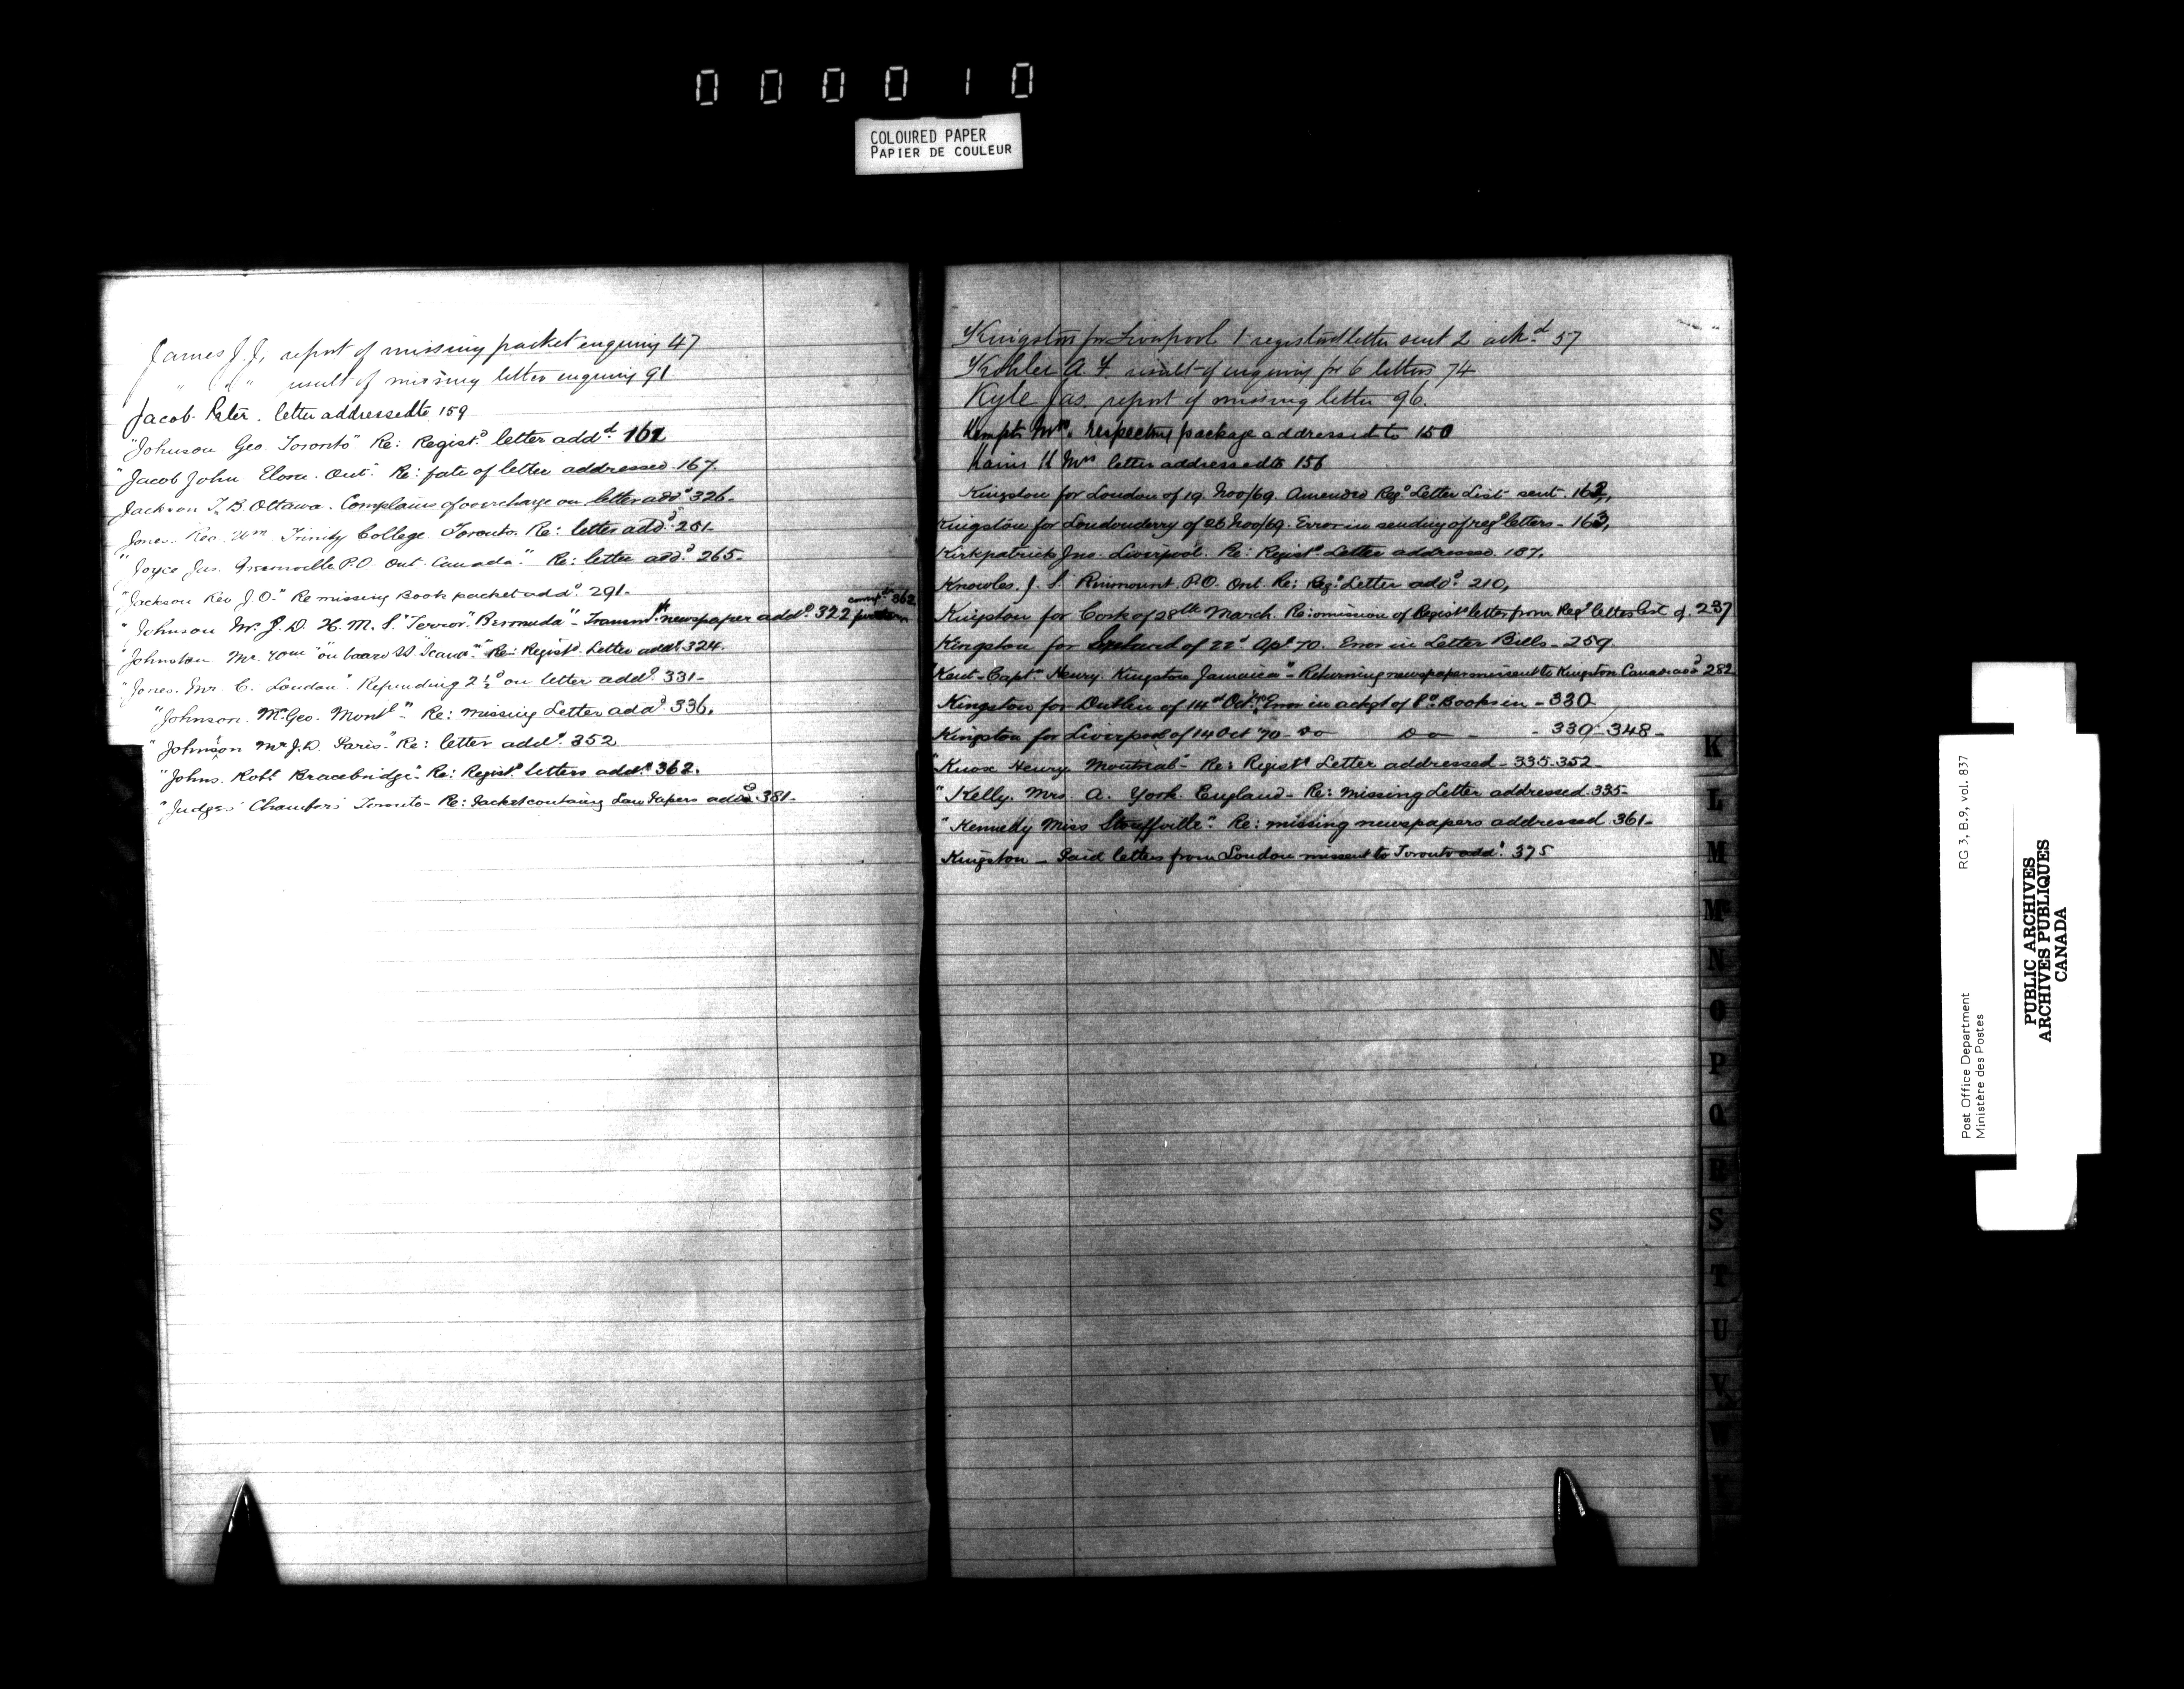 000010
COLOURED PAPER
PAPIER DE COULEUR
James J. J, report of missing packet enquiry 47
" " " result of missing letter enquiry 91
Jacob Peter. letter addressed to 159
"Johnson Geo Toronto" Re: Registd letter addd. 161
"Jacob John Elora. Ont" Re: fate of letter addressed. 167.
Jackson T. B. Ottawa. Complains of overcharge on letter addd 326.
Jones. Rev. Wm. Trinity College Toronto. Re: letter addd. 251-
"Joyce Jas. P.O. Ont. Canada." Re: letter addd 265-
"Jackson Rev J. O." Re missing Book packet addd. 291-
"Johnson Mr. J. D. H. M. S. "Terror". Bermuda" - newspaper addd. 322 362
"Johnston Mr. Wm "on board SS. " Re: Registd. Letter addd. 324.
"Jones. Mr. C. London". Refunding 2½d on letter addd. 331-
"Johnson. Mr Geo. Montl" Re: Missing Letter addd. 336.
"Johnson Mr J. D. Paris." Re: letter addd. 352
"Johns. Robt Bracebridge". Re: Registd. letters addd. 362.
"Judges' Chambers Toronto- Re: Packet containing Law Papers addd. 381-
Kingston for Liverpool 1 registered letter sent 2 ackd 57
Kohler A. F. result of enquiry for 6 letters 74
Kyle Jas. report of missing letter 96.
Mrs. respecting package addressed to 150
H Mrs letter addressed to 156
Kingston for London of 19. Nov/69. Amended Regd Letter List sent. 162,
Kingston for Londonderry of 26 Nov/69. Error in sending of regd letters - 163,
Kirkpatrick Jno. Liverpool. Re: Registd Letter addressed. 187.
Knowles. J. S. P.O. Ont. Re: Regd Letter addd. 210,
Kingston for Cork of 28th March. Re: omission of Registd letter from Regd letter list of. 237
Kingston for of 22d Apl 70. Error in Letter Bills - 259.
"Kent - Capt" Henry. Kingston Jamaica" - Returning newspaper missent to Kingston Canada addd 282
Kingston for Dublin of 14 Oct. Error in ackgt of Books in - 330
Kingston for Liverpool of 14 Oct 70 - Do Do - - 330-348-
"Knox Henry. Montreal" - Re: Registd Letter addressed - 335-352-
"Kelly. Mrs. A. York. England - Re: Missing Letter addressed. 335-
"Kennedy Miss Stouffville". Re: missing newspapers addressed. 361-
Kingston - Paid letters from London missent to Toronto addd. 375
K
L
M
Mc
N
O
P
Q
R
S
T
U
V
W
Post Office Department
Ministère des Postes
RG 3, B.9, vol. 837
PUBLIC ARCHIVES
ARCHIVES PUBLIQUES
CANADA